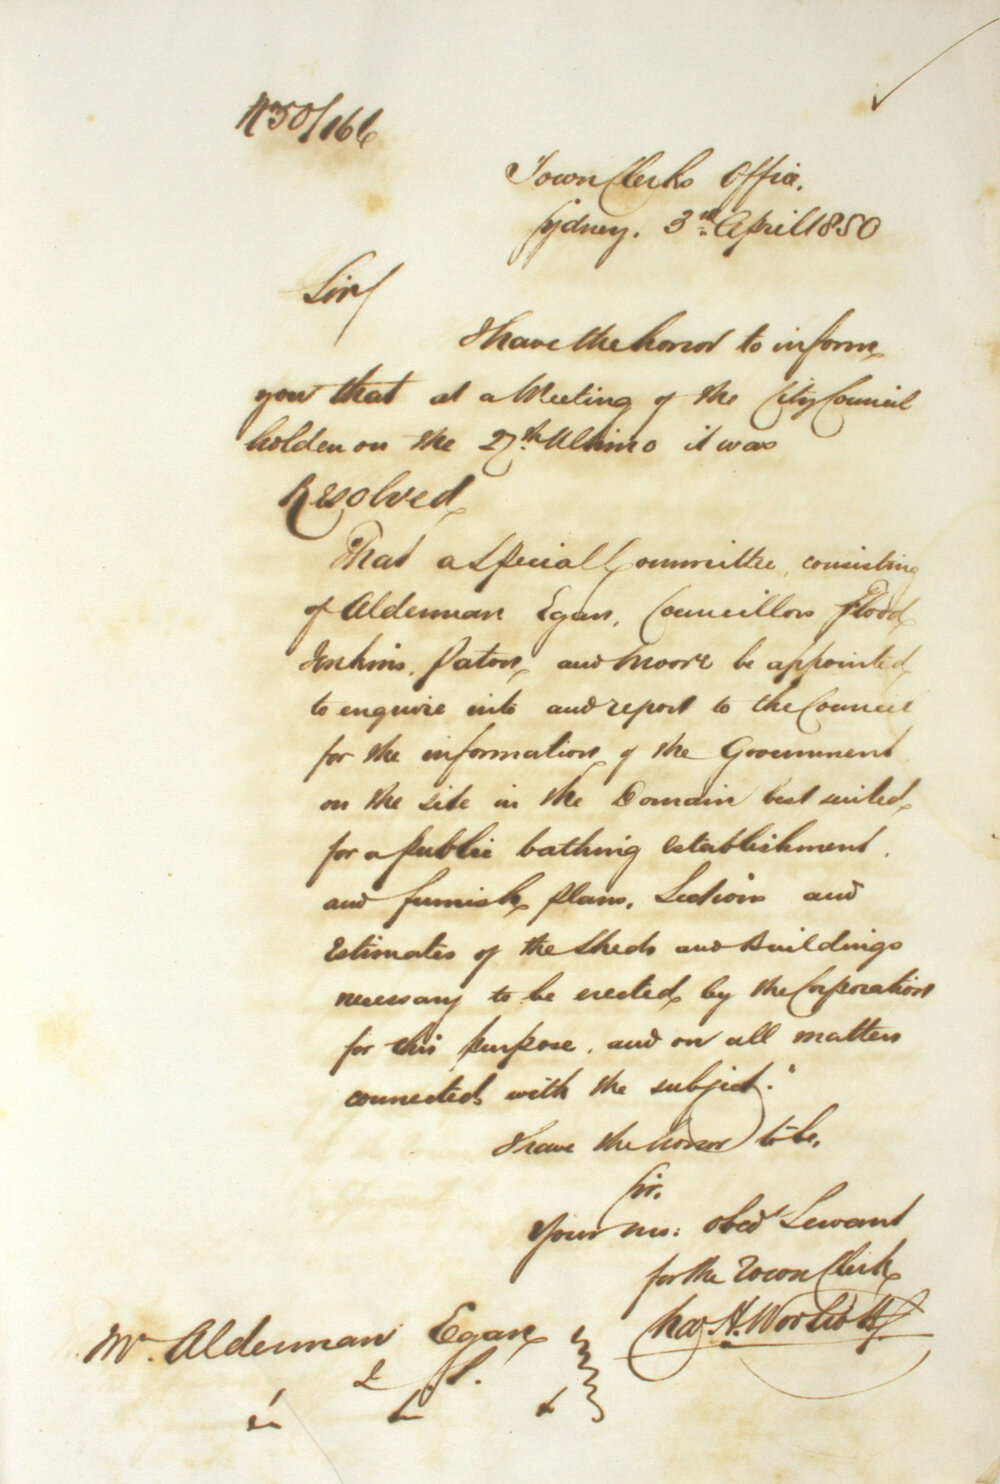 No 50/166
Town Clerks Office.
Sydney. 3rd. April 1850
Sir/
I have the honor to inform
you that at a Meeting of the City Council
holden on the 27th. Ultimo it was
Resolved
That a Special Committee, consisting
of Alderman Egan, Councillors Flood,
Jenkins, Paton, and Moore be appointed
to enquire into and report to the Council
for the information of the Government
on the site in the Domain best suited
for a public bathing establishment,
and furnish plans, Sections and
Estimates of the Sheds and Buildings
necessary to be erected by the Corporation
for this purpose, and on all matters
connected with the subject."
I have the honor to be,
Sir,
Your mo: obedt Servant
for the Town Clerk
Chas H. Woolcott
Mr. Alderman Egan